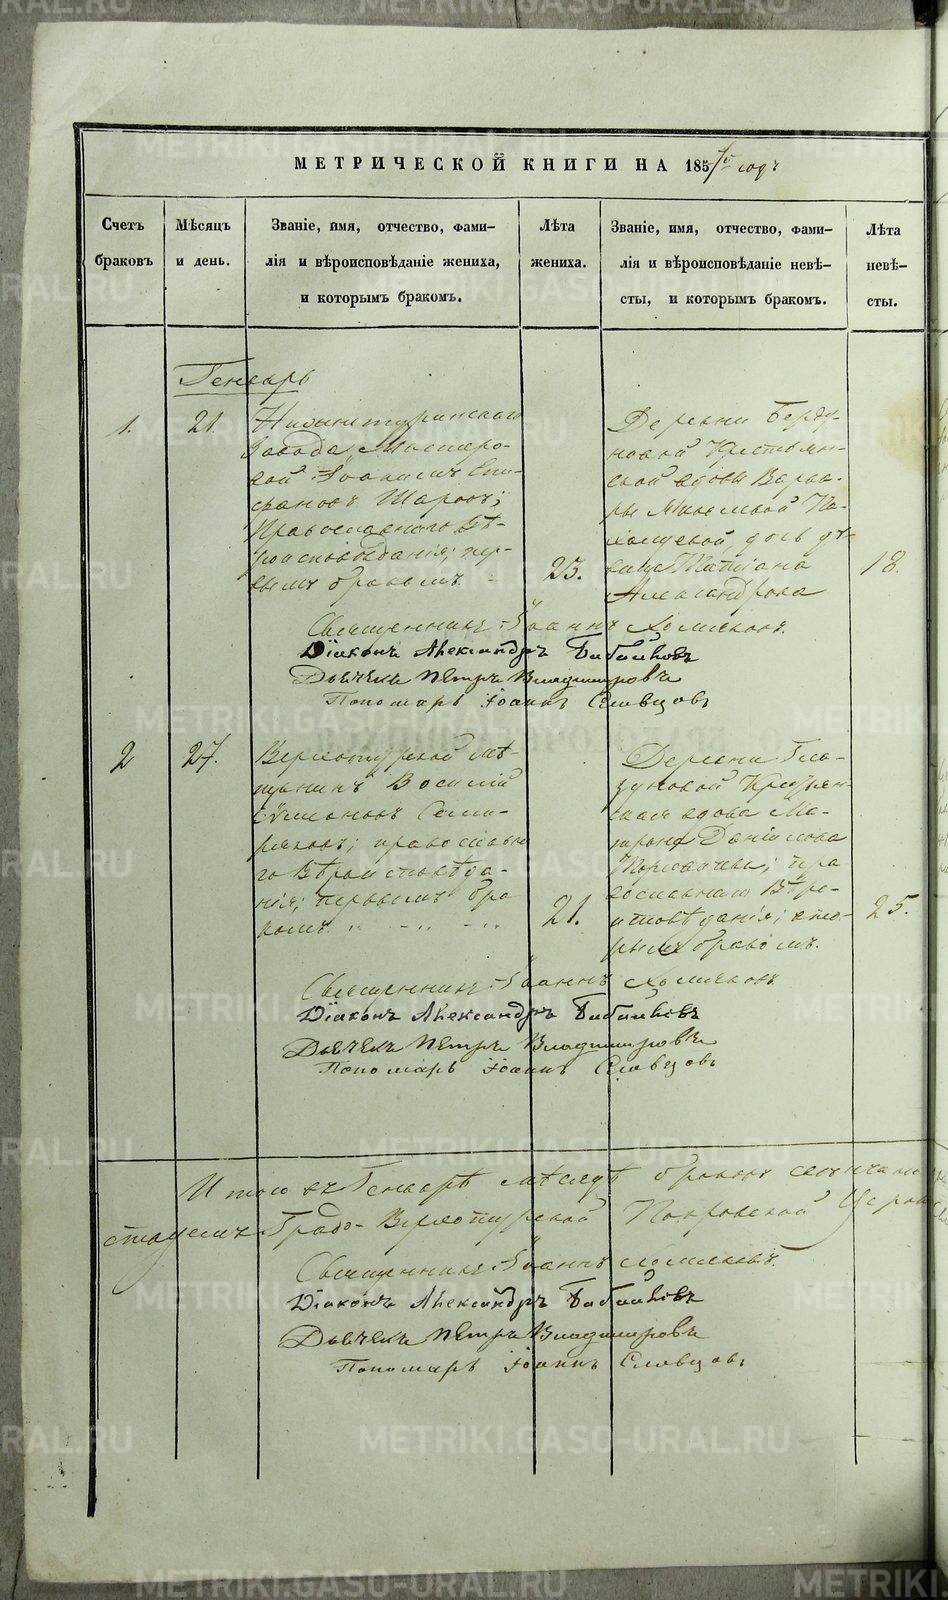 МЕТРИЧЕСКОЙ КНИГИ НА 1857й годъ
Счетъ браковъ
Мѣсяцъ и день.
Званіе, имя, отчество, фами-
лія и вѣроисповѣданіе жениха,
и которымъ бракомъ.
Лѣта жениха.
Званіе, имя, отчество, фами-
лія и вѣроисповѣданіе невѣ-
сты, и которымъ бракомъ.
Лѣта невѣ-
сты.
Генварь
1.
21.
Нижнетуринскаго
завода Мастеро-
вой Іоакимъ Епи-
фановъ Шаровъ;
Православнаго вѣ-
роисповѣданія; пер-
вымъ бракомъ
23.
Деревни
новой Крестьян-
ской вдовы Варва-
ры
дочь дѣ-
вица Татіана
Александрова
18.
Священникъ Іоаннъ Хомяковъ.
Діаконъ Александръ Бабайловъ
Дьячекъ Петръ Владимировъ
Пономарь Іоаннъ Словцовъ
2
27.
Верхотурской мѣ-
щанинъ Василій
Симіоновъ
православна-
го Вѣроисповѣда-
нія; первымъ бра-
комъ
21.
Деревни Гла-
зуновой Крестьян-
ская вдова Ма-
трона Даніилова
пра-
вославнаго Вѣро-
исповѣданія; вто-
рымъ бракомъ.
25.
Священникъ Іоаннъ Хомяковъ
Діаконъ Александръ Бабайловъ
Дьячекъ Петръ Владимировъ
Пономарь Іоаннъ Словцовъ
Итого въ Генварѣ мѣсяцѣ браковъ
Градо-Верхотурской Покровской Церкви
Священникъ Іоаннъ Хомяковъ.
Діаконъ Александръ Бабайловъ
Дьячекъ Петръ Владимировъ
Пономарь Іоаннъ Словцовъ
METRIKI.GASO-URAL.RU